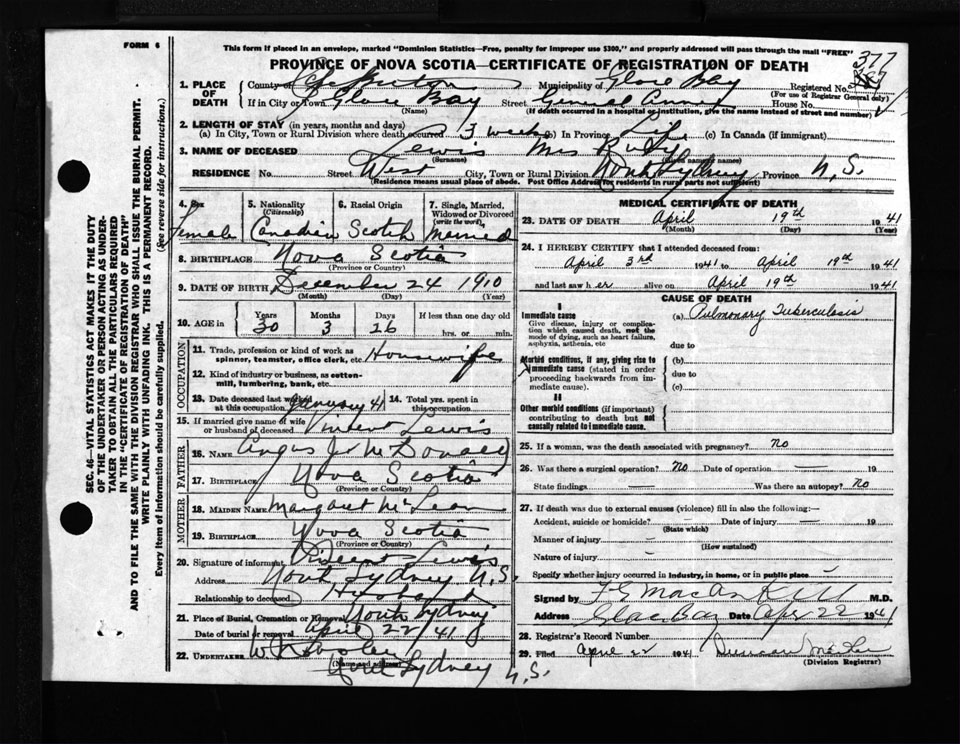 FORM 6
This form if placed in an envelope, marked "Dominion Statistics—Free, penalty for improper use $300," and properly addressed will pass through the mail "FREE"
PROVINCE OF NOVA SCOTIA—CERTIFICATE OF REGISTRATION OF DEATH
377
1. PLACE OF DEATH County of Cape Breton Municipality of Glace Bay Registered No.
(For use of Registrar General only)
If in City or Town Glace Bay Street General House No.
(Name) (If death occurred in hospital or institution, give the name instead of street and number)
2. LENGTH OF STAY (in years, months and days)
(a) In City, Town or Rural Division where death occurred 3 weeks (b) In Province Life (c) In Canada (if immigrant)
3. NAME OF DECEASED Lewis Mrs Ruby
(Surname)
RESIDENCE No. Street West City, Town or Rural Division North Sydney Province N.S.
(Residence means usual place of abode. Post Office Address for residents in rural parts not sufficient)
4. Sex Female
5. Nationality (Citizenship) Canadian
6. Racial Origin Scotch
7. Single, Married, Widowed or Divorced (write the word) Married
8. BIRTHPLACE Nova Scotia
(Province or Country)
9. DATE OF BIRTH December 24 1910
(Month) (Day) (Year)
10. AGE in Years 30 Months 3 Days 26 If less than one day old hrs. or min.
OCCUPATION
11. Trade, profession or kind of work as spinner, teamster, office clerk, etc. Housewife
12. Kind of industry or business, as cotton-mill, lumbering, bank, etc.
13. Date deceased last worked at this occupation January 41
14. Total yrs. spent in this occupation
15. If married give name of wife or husband of deceased Vincent Lewis
FATHER
16. NAME Angus J. McDonald
17. BIRTHPLACE Nova Scotia
(Province or Country)
MOTHER
18. MAIDEN NAME Margaret McLean
19. BIRTHPLACE Nova Scotia
(Province or Country)
20. Signature of informant Vincent Lewis
Address North Sydney N.S.
Relationship to deceased Husband
21. Place of Burial, Cremation or Removal North Sydney
Date of burial or removal April 22 41
22. UNDERTAKER
North Sydney N.S.
MEDICAL CERTIFICATE OF DEATH
23. DATE OF DEATH April 19th 1941
(Month) (Day) (Year)
24. I HEREBY CERTIFY that I attended deceased from:
April 3rd 1941 to April 19th 1941
and last saw her alive on April 19th 1941
CAUSE OF DEATH
I
Immediate cause
Give disease, injury or complication which caused death, not the mode of dying, such as heart failure, asphyxia, asthenia, etc
(a) Pulmonary Tuberculosis
due to
Morbid conditions, if any, giving rise to immediate cause (stated in order proceeding backwards from immediate cause).
(b)
due to
(c)
II
Other morbid conditions (if important) contributing to death but not causally related to immediate cause.
25. If a woman, was the death associated with pregnancy? No
26. Was there a surgical operation? No Date of operation — 19
State findings — Was there an autopsy? No
27. If death was due to external causes (violence) fill in also the following:—
Accident, suicide or homicide? Date of injury — 19
(State which)
Manner of injury —
(How sustained)
Nature of injury —
Specify whether injury occurred in industry, in home, or in public place —
Signed by M.D.
Address Glace Bay Date Apr 22 1941
28. Registrar's Record Number
29. Filed April 22 1941 Duncan
(Division Registrar)
SEC. 46—VITAL STATISTICS ACT MAKES IT THE DUTY
OF THE UNDERTAKER OR PERSON ACTING AS UNDER-
TAKER TO OBTAIN ALL THE PARTICULARS REQUIRED
IN THE "CERTIFICATE OF REGISTRATION OF DEATH"
AND TO FILE THE SAME WITH THE DIVISION REGISTRAR WHO SHALL ISSUE THE BURIAL PERMIT.
WRITE PLAINLY WITH UNFADING INK. THIS IS A PERMANENT RECORD.
Every item of information should be carefully supplied. (See reverse side for instructions.)